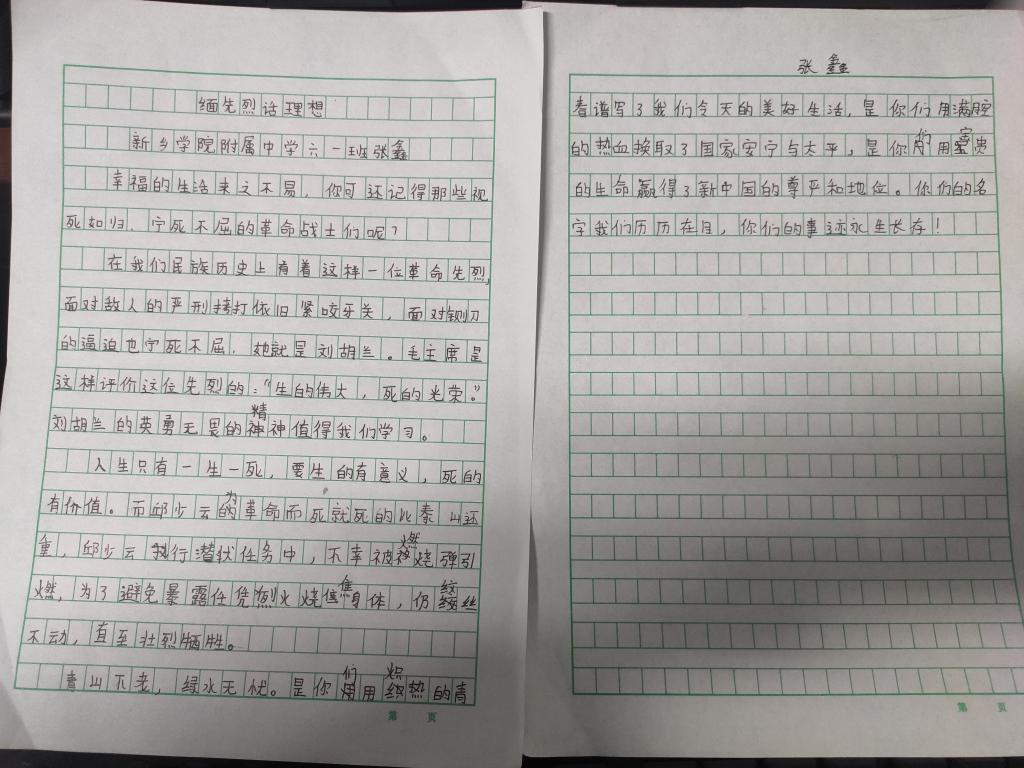 缅先烈话理想
新乡学院附属中学六一班张鑫
幸福的生活来之不易，你可还记得那些视
死如归、宁死不屈的革命战士们呢？
在我们民族历史上有着这样一位革命先烈，
面对敌人的严刑拷打依旧紧咬牙关，面对铡刀
的逼迫也宁死不屈，她就是刘胡兰。毛主席是
这样评价这位先烈的：“生的伟大，死的光荣。”
刘胡兰的英勇无畏的精神值得我们学习。
人生只有一生一死，要生的有意义，死的
有价值。而邱少云为革命而死就死的比泰山还
重，邱少云执行潜伏任务中，不幸被燃烧弹引
燃，为了避免暴露任凭烈火烧焦身体，仍纹丝
不动，直至壮烈牺牲。
青山不老，绿水无忧。是你们用炽热的青
张鑫
春谱写了我们今天的美好生活，是你们用满腔
的热血换取了国家安宁与太平，是你们用宝贵
的生命赢得了新中国的尊严和地位。你们的名
字我们历历在目，你们的事迹永生长存！
第 页
第 页